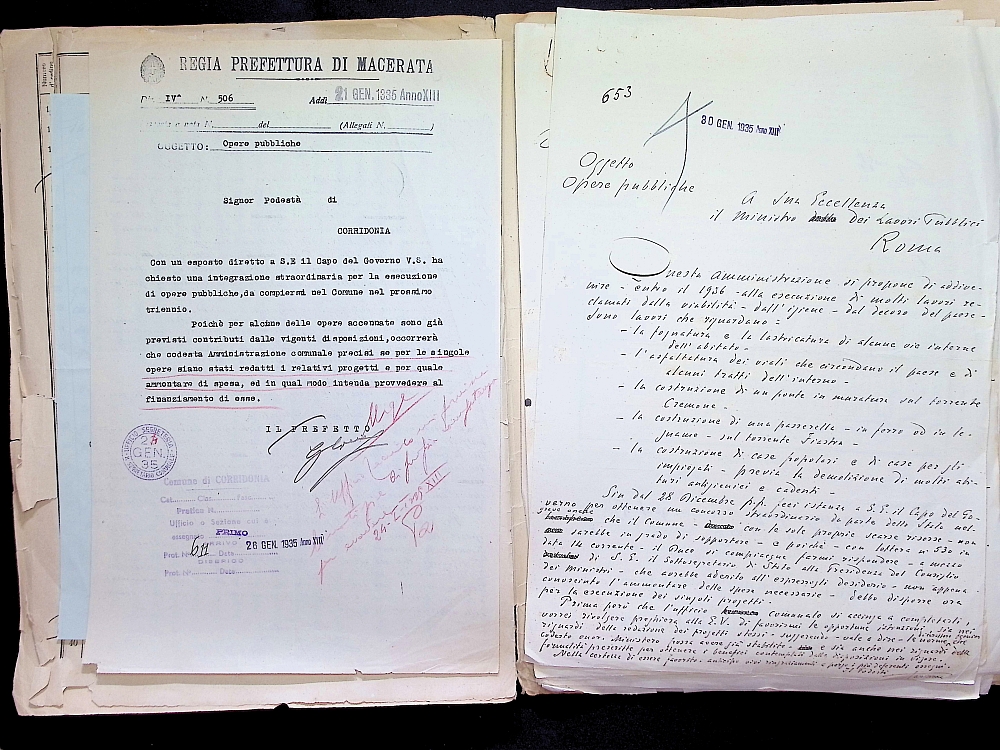 REGIA PREFETTURA DI MACERATA
IVª N. 506
Addì 21 GEN. 1935 Anno XIII
N. del (Allegati N. )
OGGETTO: Opere pubbliche
Signor Podestà di
CORRIDONIA
Con un esposto diretto a S.E il Capo del Governo V.S. ha
chiesto una integrazione straordinaria per la esecuzione
di opere pubbliche,da compiersi nel Comune nel prossimo
triennio.
Poichè per alcune delle opere accennate sono già
previsti contributi dalle vigenti disposizioni, occorrerà
che codesta Amministrazione comunale precisi se per le singole
opere siano stati redatti i relativi progetti e per quale
ammontare di spesa, ed in qual modo intenda provvedere al
finanziamento di esse.
IL PREFETTO
Urge
24-1-935 XIII
GEN.
35
Comune di CORRIDONIA
Cat. Clas. Fasc.
Pratica N.
Ufficio o Sezione cui è
assegnato PRIMO
ARRIVO
Prot. N. 611 Data 26 GEN. 1935 Anno XIII
Prot. N. Data
653
30 GEN. 1935 Anno XIII
Oggetto
Opere pubbliche
A Sua Eccellenza
il Ministro dei Lavori Pubblici
Roma
Questa Amministrazione si propone di addive-
nire - entro il 1936 - alla esecuzione di molti lavori re-
clamati dalla viabilità - dall'igiene - dal decoro del paese -
Sono lavori che riguardano -
- la fognatura e la lastricatura di alcune vie interne
dell'abitato -
- l'asfaltatura dei viali che circondano il paese e di
alcuni tratti dell'interno -
- la costruzione di un ponte in muratura sul torrente
Cremone -
- la costruzione di una passerella - in ferro od in le-
gname - sul torrente Fiastra -
- la costruzione di case popolari e di case per gli
impiegati - previa la demolizione di molti abi-
turi antigienici e cadenti -
Sin dal 28 Dicembre p.p. feci istanza a S.E. il Capo del Go-
verno per ottenere un concorso straordinario da parte dello Stato
che il Comune - con le sole proprie scarse risorse - non
sarebbe in grado di sopportare - e poichè - con lettera n° 530 in
data 12 corrente - il Duce si compiacque farmi rispondere - a mezzo
di S.E. il Sottosegretario di Stato alla Presidenza del Consiglio
dei Ministri - che avrebbe aderito all'espressogli desiderio - non appena
conosciuto l'ammontare delle spese necessarie - debbo disporre ora
per la esecuzione dei singoli progetti -
Prima però che l'ufficio comunale si accinga a completarli,
vorrei rivolgere preghiera alla E.V. di favorirmi le opportune istruzioni sia nei
riguardi della redazione dei progetti stessi - suggerendo - vale a dire - le norme che
codesto onor. Ministero possa avere già stabilito e sia anche nei riguardi delle
formalità prescritte per ottenere i benefici contemplati dalle disposizioni in vigore.
Nella certezza di essere favorito, anticipo vivi ringraziamenti e porgo i più deferenti ossequi -
Il Podestà